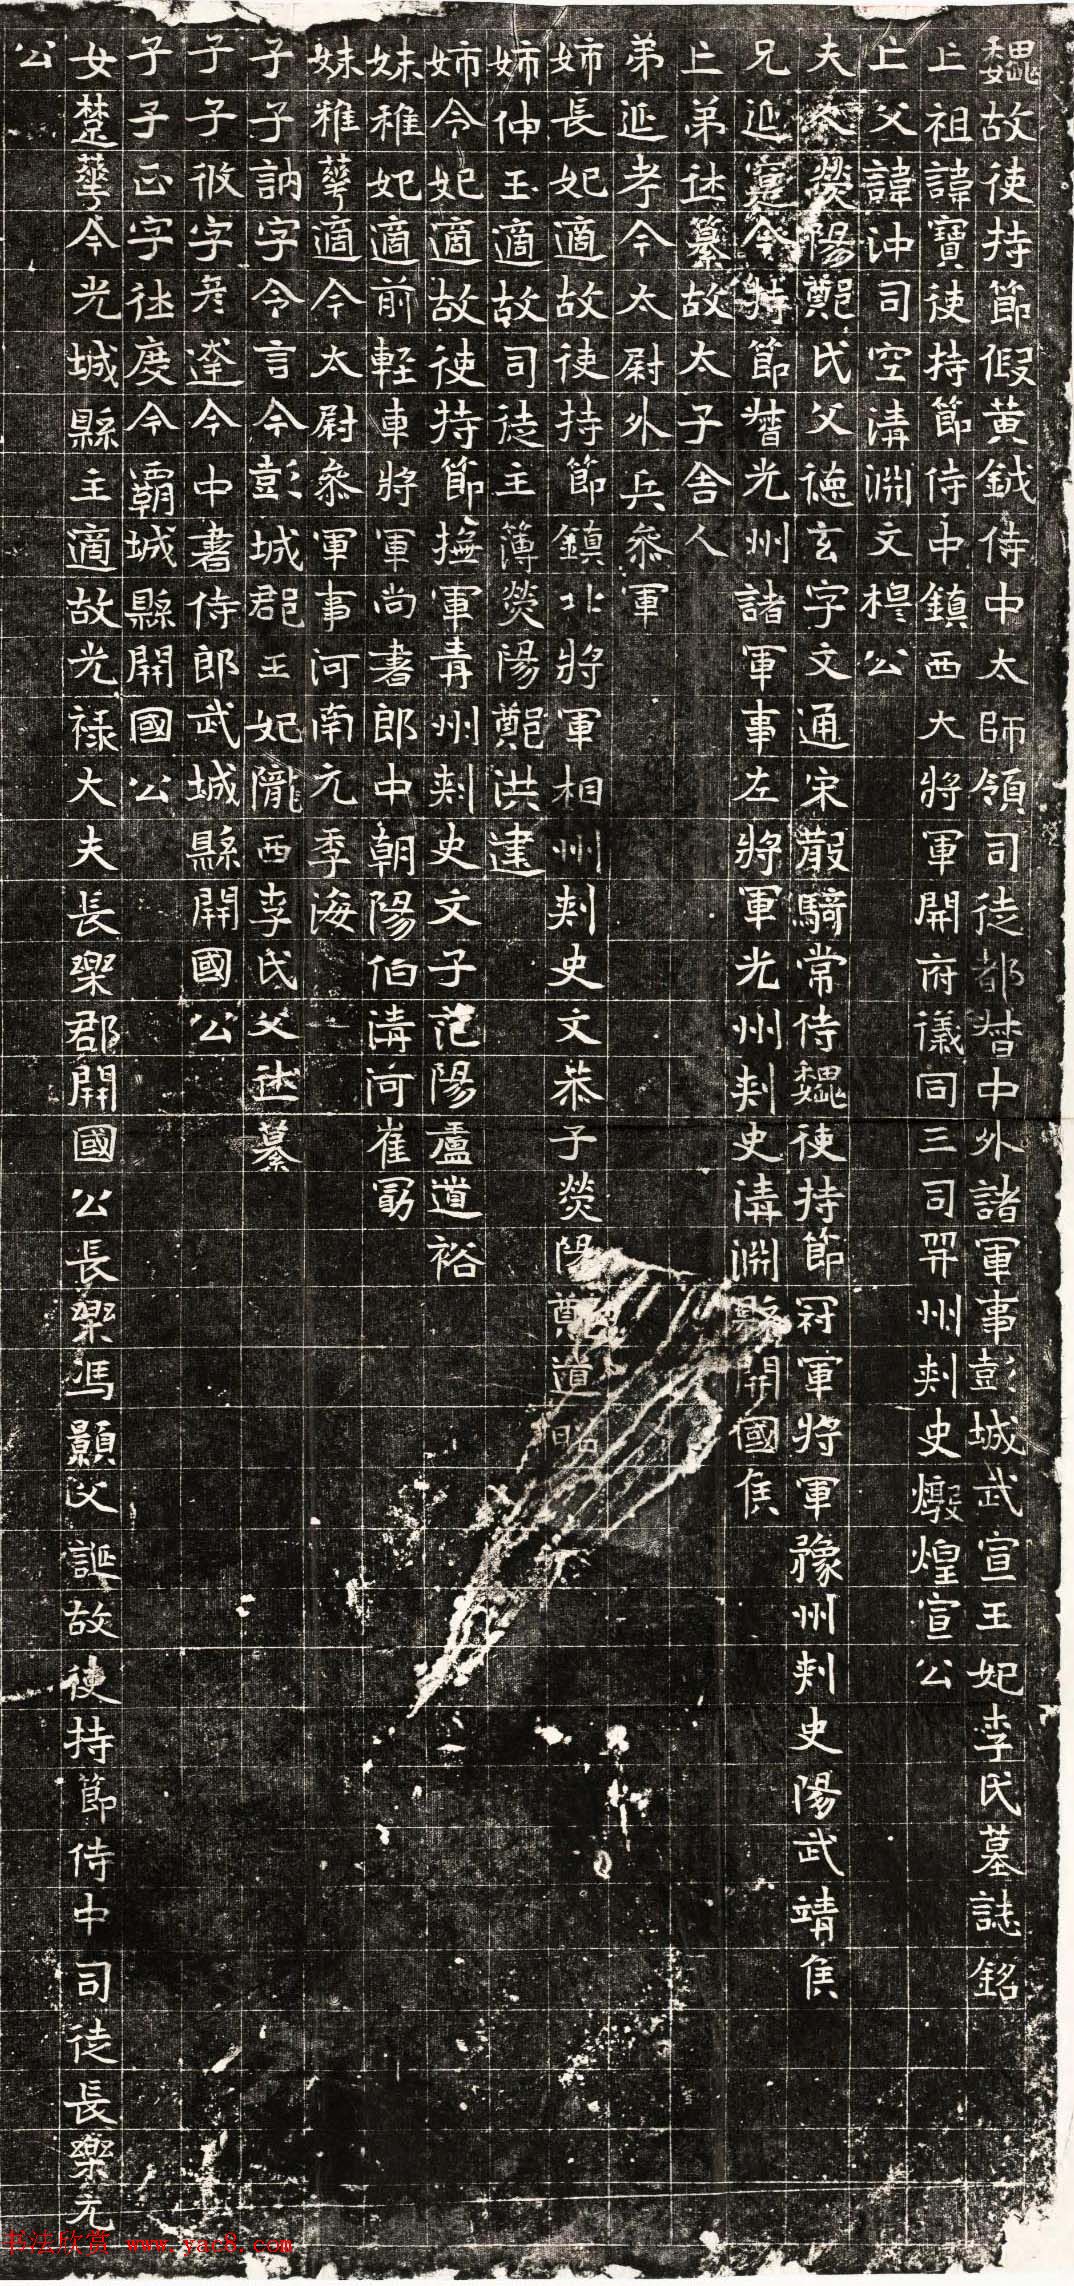 魏故使持節假黃鉞侍中太師領司徒都督中外諸軍事彭城武宣王妃李氏墓誌銘
亡祖諱寶使持節侍中鎮西大將軍開府儀同三司并州刾史燉煌宣公
亡父諱沖司空清淵文穆公
夫人熒陽鄭氏父德玄字文通宋散騎常侍魏使持節冠軍將軍豫州刾史陽武靖侯
兄延寔今持節督光州諸軍事左將軍光州刾史清淵縣開國侯
亡弟休纂故太子舍人
弟延考今太尉外兵叅軍
姉長妃適故使持節鎮北將軍相州刾史文恭子熒陽鄭道昭
姉仲玉適故司徒主簿熒陽鄭洪建
姉令妃適故使持節撫軍青州刾史文子范陽盧道裕
妹稚妃適前輕車將軍尚書郎中朝陽伯清河崔勗
妹稚華適今太尉叅軍事河南元季海
子子訥字令言今彭城郡王妃隴西李氏父休纂
子子攸字彦達今中書侍郎武城縣開國公
子子正字休度今霸城縣開國公
女楚華今光城縣主適故光祿大夫長樂郡開國公長樂馮顥父誕故使持節侍中司徒長樂元
公
书法欣赏 www.yac8.com